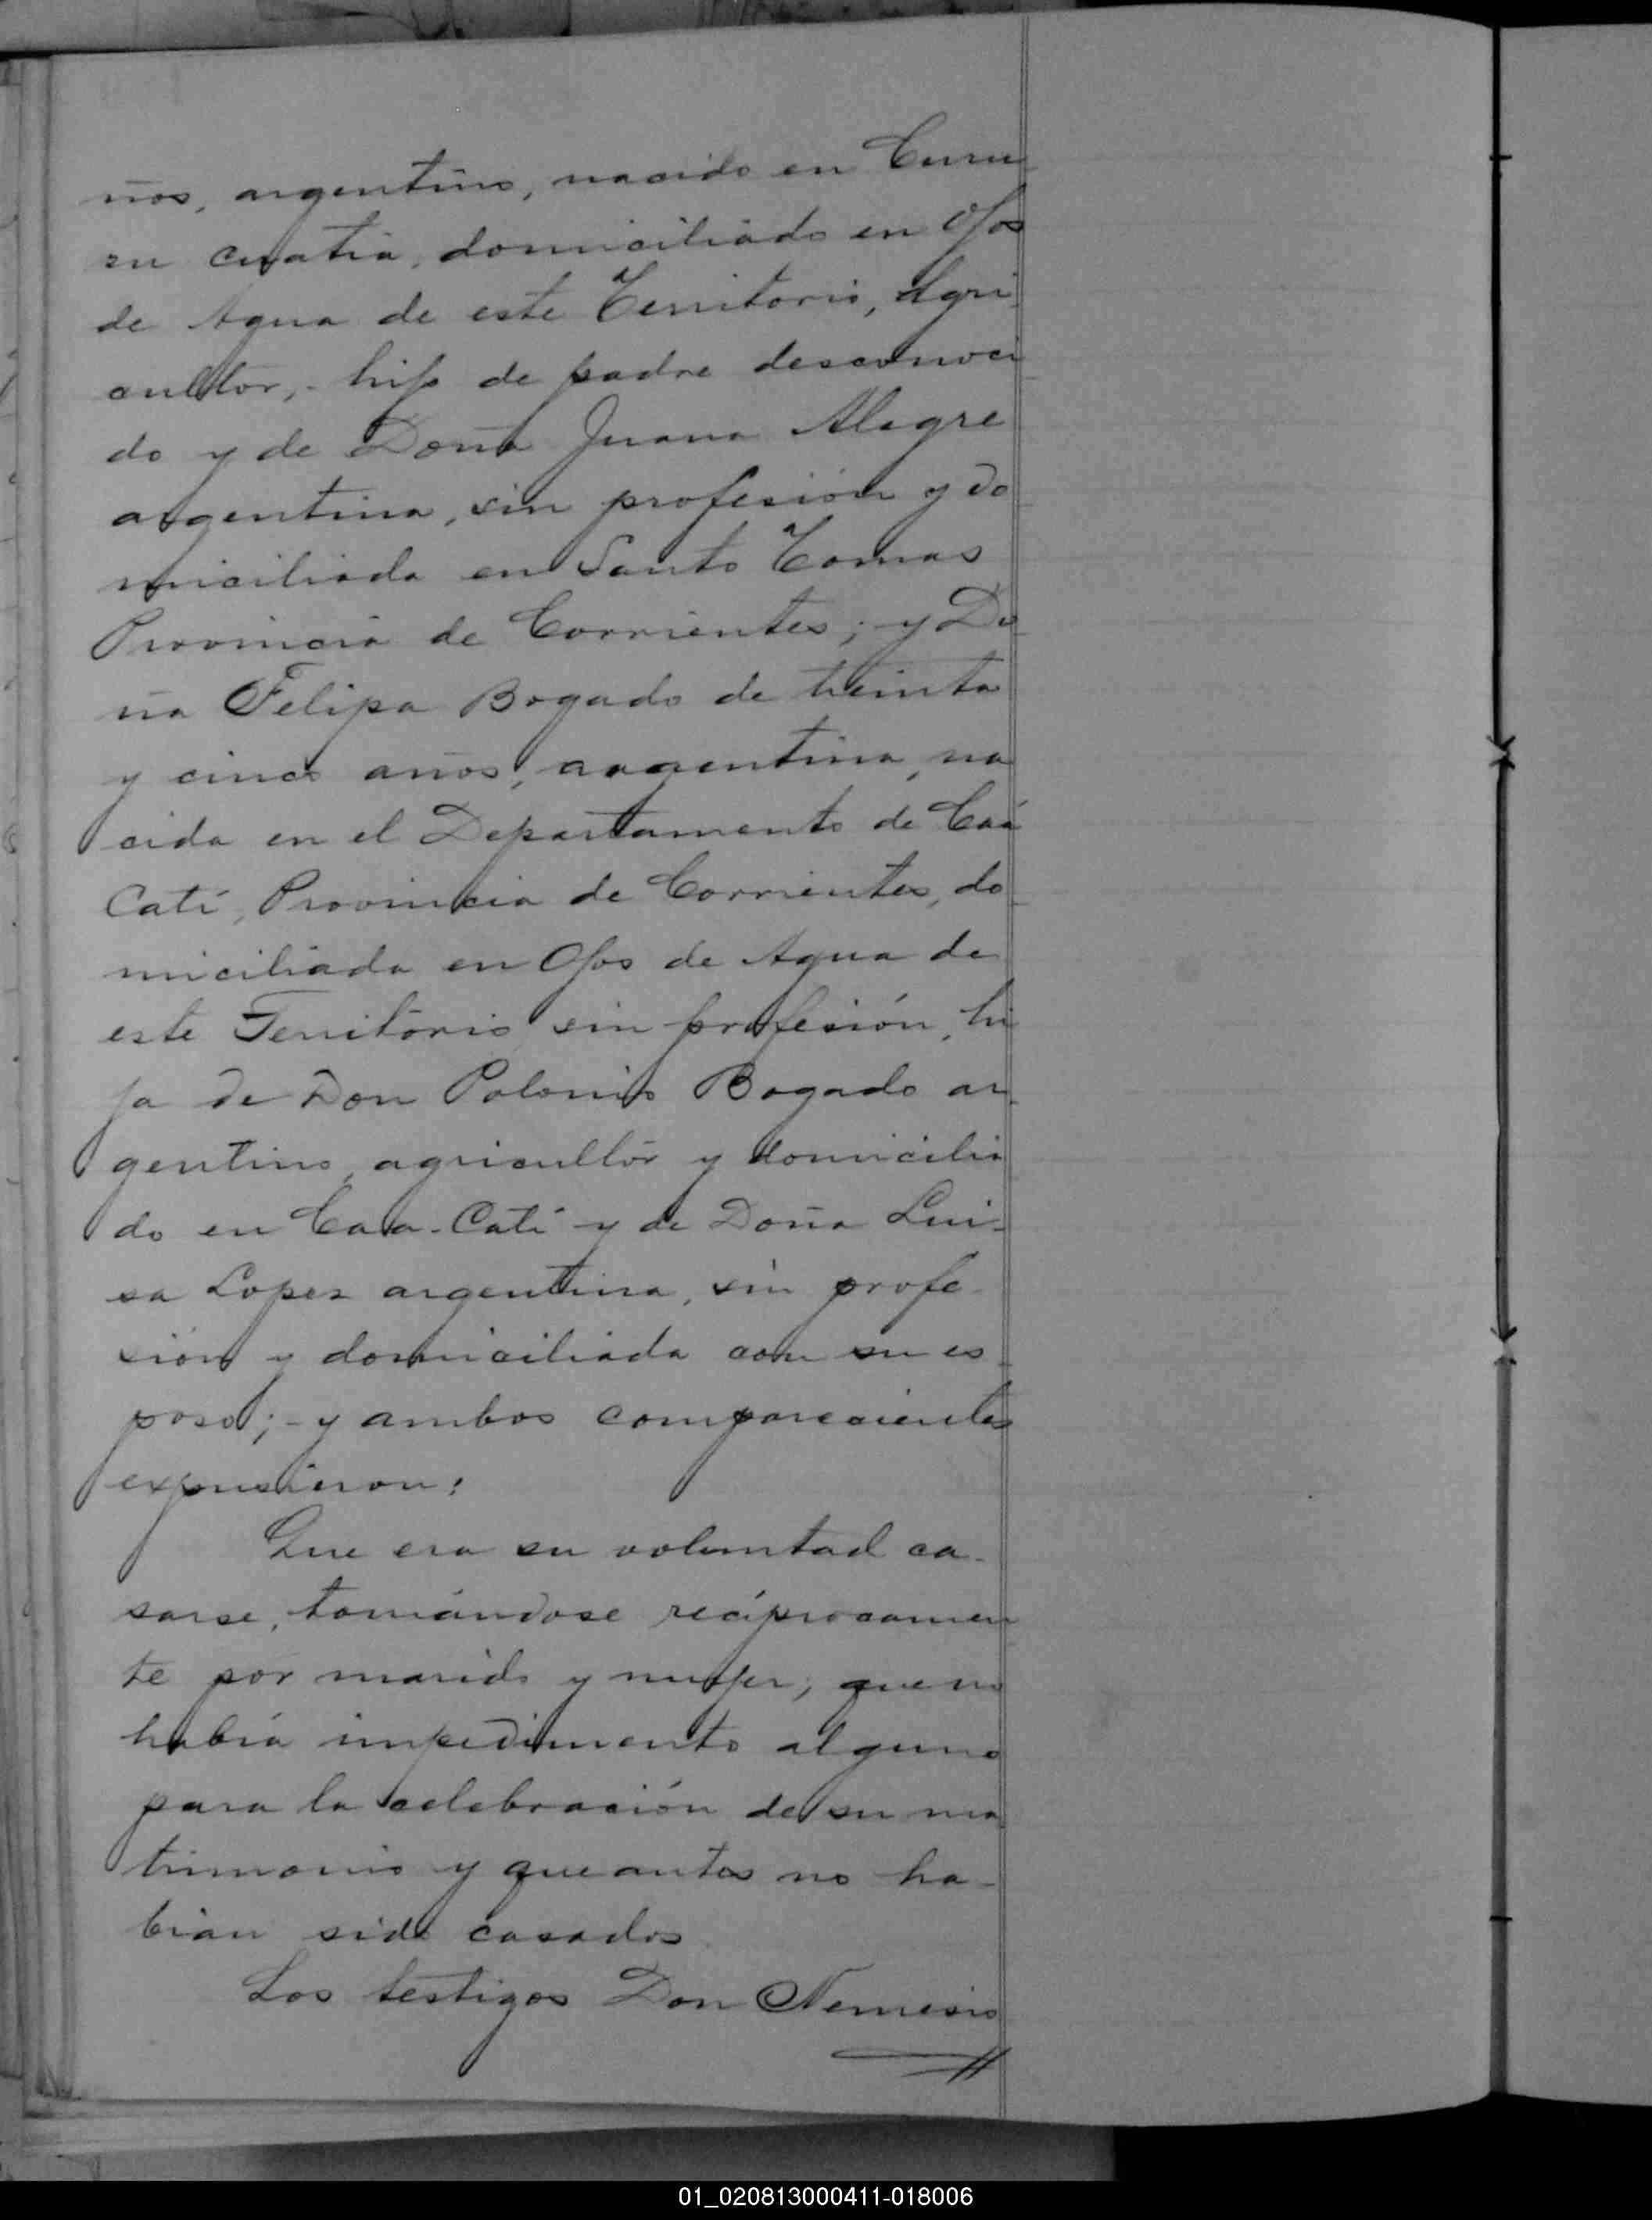 ños, argentino, nacido en Curu
zu cuatia, domiciliado en Ojos
de Agua de este Territorio, Agri
cultor,- hijo de padre desconoci
do y de Doña Juana Alegre
argentina, sin profesión y do
miciliada en Santo Tomas
Provincia de Corrientes; - y Do
ña Felipa Bogado de treinta
y cinco años, argentina, na
cida en el Departamento de Caá
Catí, Provincia de Corrientes, do
miciliada en Ojos de Agua de
este Territorio, sin profesión, hi
ja de Don Polonio Bogado ar
gentino, agricultor y domicilia
do en Caa-Catí y de Doña Lui-
sa Lopez argentina, sin profe-
sión y domiciliada con su es
poso; - y ambos comparecientes
expusieron:
Que era su voluntad ca-
sarse, tomándose recíprocamen
te por marido y mujer; que no
había impedimento alguno
para la celebración de su ma
trimonio y que antes no ha-
bian sido casados
Los testigos Don Nemesio
01_020813000411-018006